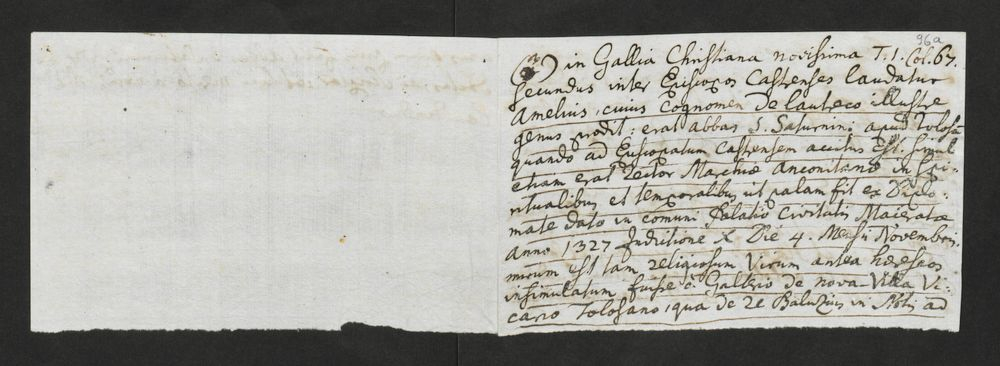 96a
(a) in Gallia Christiana novissima T. I. Col. 67.
secundus inter Episcopos Castrenses laudatur
Amelius, cuius cognomen de lautreco illustre
genus prodit: erat abbas S. Saturnini apud Tolosā
quando ad Episcopatum Castrensem accitus est. Simul
etiam erat Rector Marchiæ Anconitanæ in Spi-
ritualibus et temporalibus ut palam fit ex Diplo-
mate dato in comuni Palatio Civitatis Maceratæ
anno 1327 Indictione X Die 4. Mensis Novembris.
mirum est tam religiosum Virum antea hæreseos
insimulatum fuisse a Galterio de nova Villa Vi-
cario Tolosano, qua de re Baluzius in Notis ad